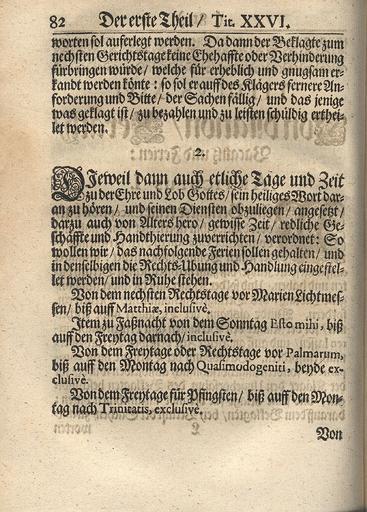 82 Der erste Theil / Tit. XXVI.
worten sol auferlegt werden. Da dann der Beklagte zum
nechsten Gerichtstage keine Ehehaffte oder Verhinderung
fürbringen würde / welche für erheblich und gnugsam er-
kandt werden könte : so sol er auf des Klägers fernere An-
forderung und Bitte / der Sachen fällig / und das jenige
was geklagt ist / zu bezahlen und zu leisten schüldig erthei-
let werden.
2.
DIeweil dann auch etliche Tage und Zeit
zu der Ehre und Lob Gottes / sein heiliges Wort dar-
an zu hören / und seinen Diensten obzuliegen / angesetzt /
darzu auch von Alters hero / gewisse Zeit / redliche Ge-
schäffte und Handthierung zuverrichten / verordnet : So
wollen wir / das nachfolgende Ferien sollen gehalten / und
in denselbigen die Rechts-Ubung und Handlung eingestel-
let werden / und in Ruhe stehen.
Von dem nechsten Rechtstage vor Marien Lichtmes-
sen / biß auff Matthiæ, inclusivè.
Item zu Faßnacht von dem Sonntag Esto mihi, biß
auff den Freytag darnach / inclusivè.
Von dem Freytage oder Rechtstage vor Palmarum,
biß auff den Montag nach Quasimodogeniti, beyde ex-
clusivè.
Von dem Freytage für Pfingsten / biß auff den Mon-
tag nach Trinitatis, exclusivè.
Von